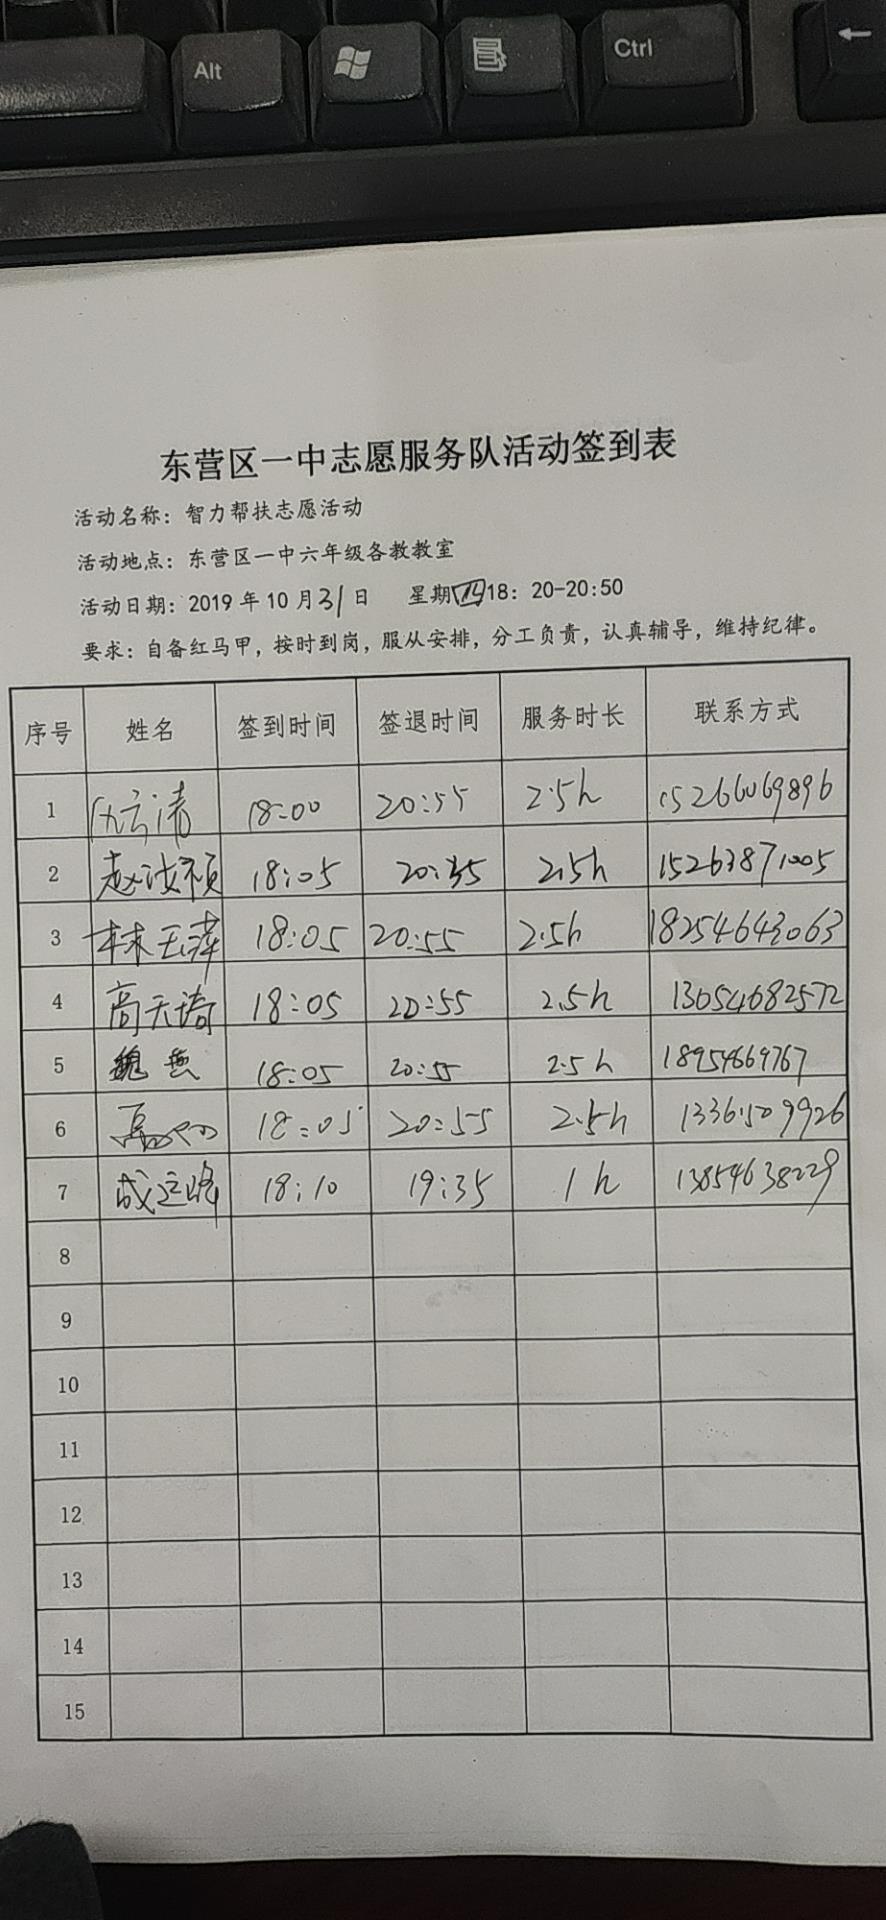 Alt
Ctrl
东营区一中志愿服务队活动签到表
活动名称：智力帮扶志愿活动
活动地点：东营区一中六年级各教教室
活动日期：2019年10月31日 星期四18：20-20:50
要求：自备红马甲，按时到岗，服从安排，分工负责，认真辅导，维持纪律。
序号 姓名 签到时间 签退时间 服务时长 联系方式
1 18:00 20:55 2.5h 15266069896
2 赵汝祯 18:05 20:35 2.5h 15263871005
3 林玉萍 18:05 20:55 2.5h 18254643063
4 高天琦 18:05 20:55 2.5h 13654682572
5 魏燕 18:05 20:55 2.5h 18954669767
6 18:05 20:55 2.5h 13365099926
7 成连峰 18:10 19:35 1h 13854638229
8
9
10
11
12
13
14
15